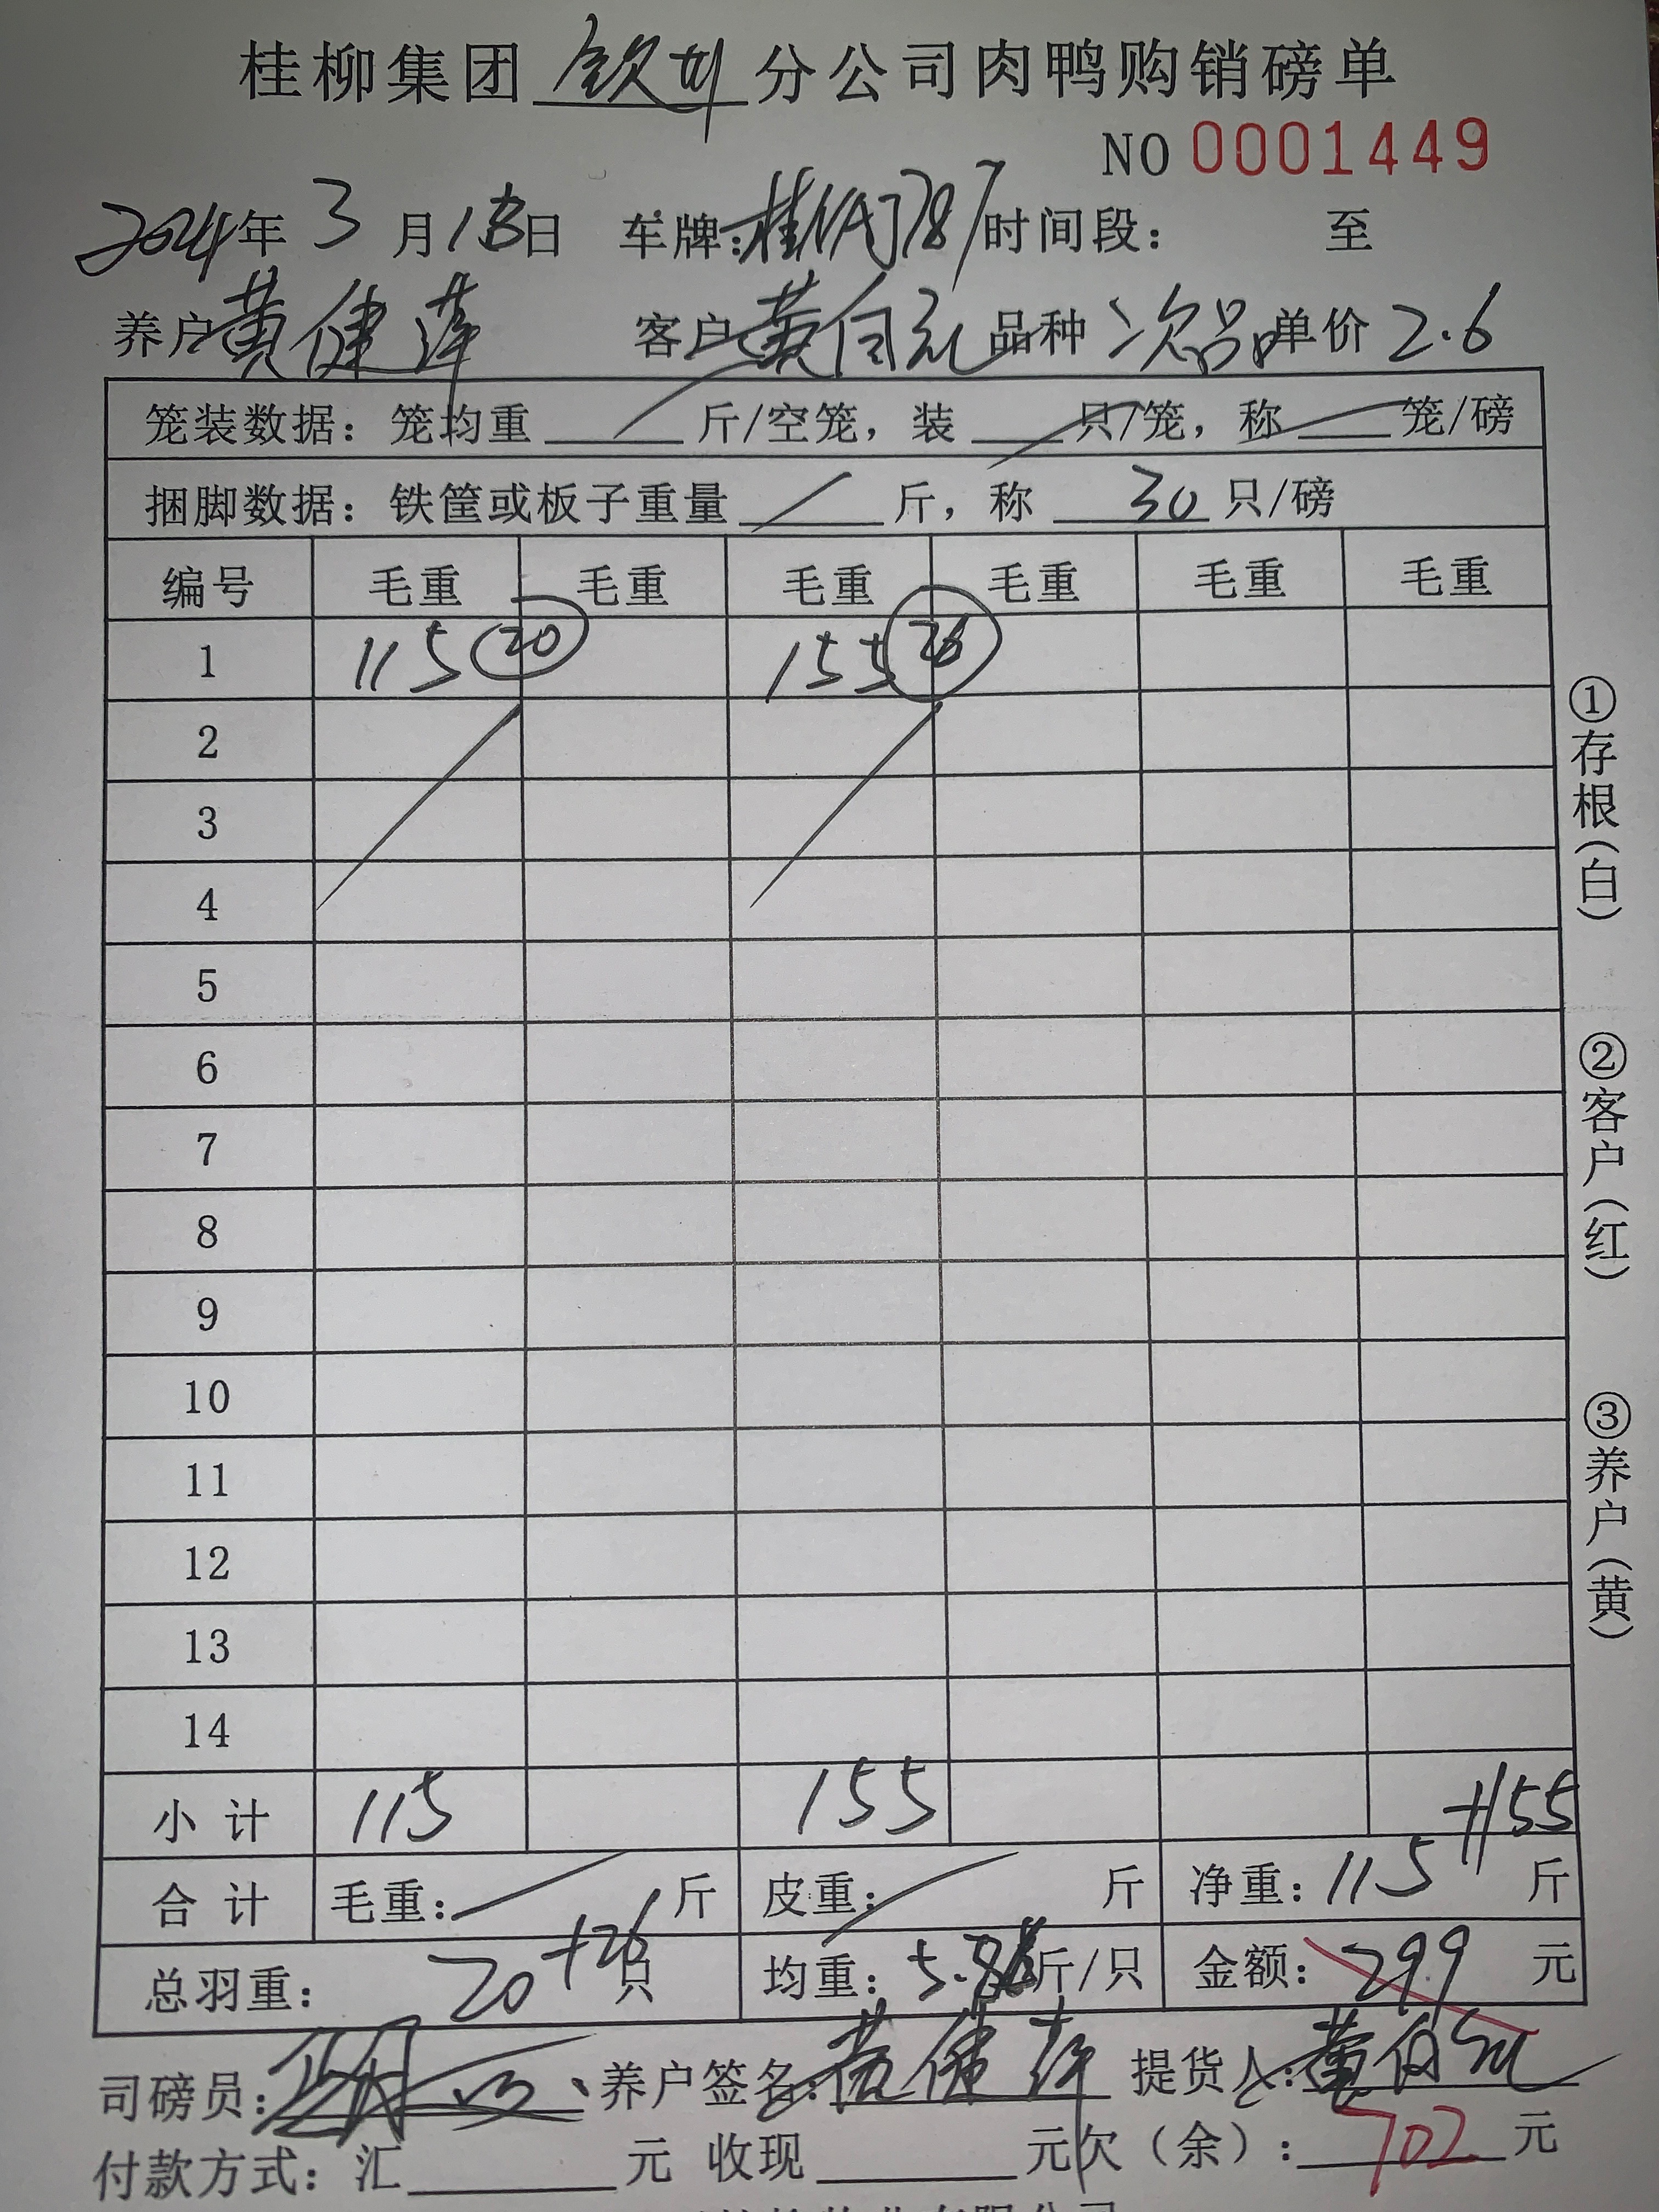 桂柳集团 钦州 分公司肉鸭购销磅单
NO 0001449
2024年 3 月 18日 车牌: 时间段: 至
养户 黄健萍 客户 黄 品种 次品 单价 2.6
笼装数据: 笼均重 斤/空笼, 装 只/笼, 称 笼/磅
捆脚数据: 铁筐或板子重量 斤, 称 30 只/磅
编号 毛重 毛重 毛重 毛重 毛重 毛重
1 115 20 155 26
2
3
4
5
6
7
8
9
10
11
12
13
14
小计 115 155 +155
合计 毛重: 斤 皮重: 斤 净重: 115 斤
总羽重: 20+26 只 均重: 斤/只 金额: 299 元
司磅员: 养户签名: 黄健萍 提货人: 黄
付款方式: 汇 元 收现 元 欠(余): 702 元
①存根(白)
②客户(红)
③养户(黄)